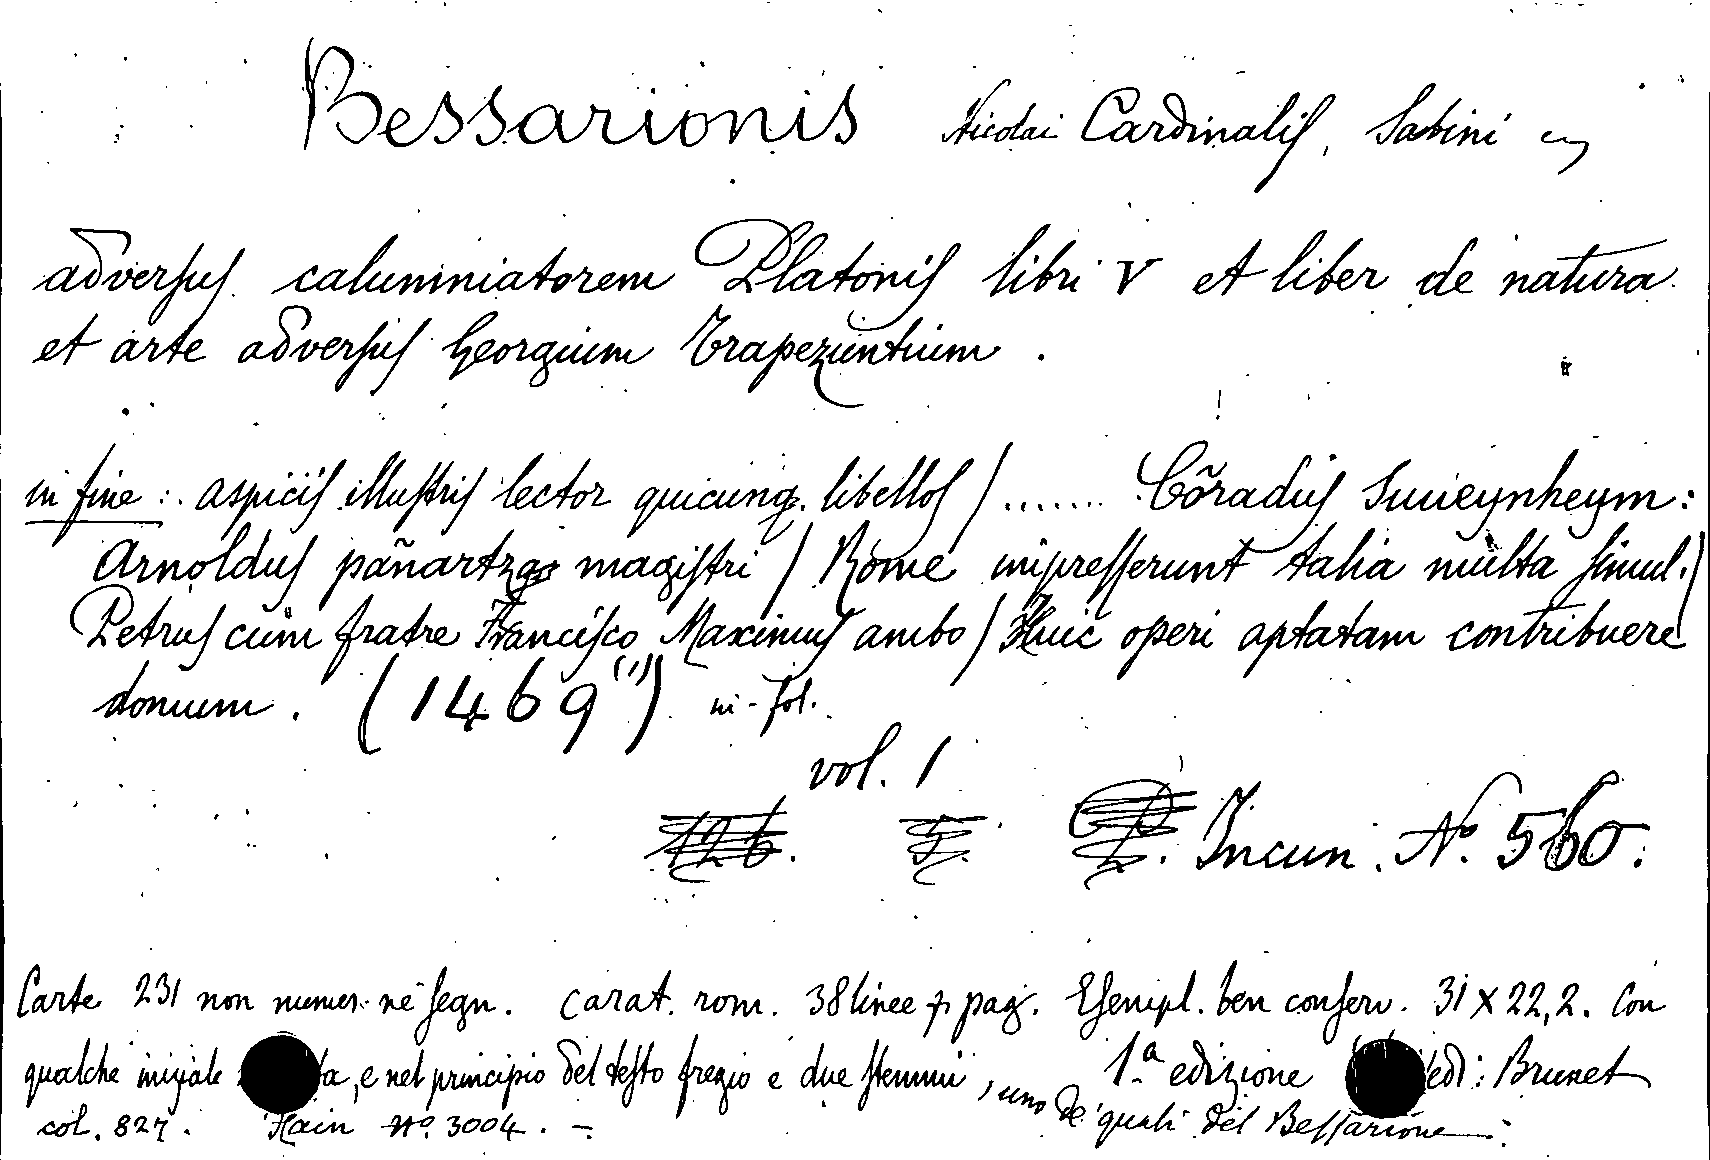 Bessarionis Nicolai Cardinalis, Sabini
adversus calumniatorem Platonis libri V et liber de natura
et arte adversus Georgium Trapezuntium.
in fine: aspicis illustris lector quicunq. libellos / ....... Cõradus Suueynheym:
Arnoldus pañartzqz magistri / Rome impresserunt talia multa simul. /
Petrus cum fratre Francisco Maximus ambo / Huic operi aptatam contribuere
domum. (1469(")) in-fol.
vol. 1
126. 5. Incun. Nº. 560.
Carte 231 non numer. nè segn. carat. rom. 38 linee p. pag. Esempl. ben conserv. 31 x 22,2. Con
qualche iniziale ta, e nel principio del testo fregio e due stemmi, 1.ª edizione edi: Brunet
col. 827. Hain Nº. 3004. - uno de' quali del Bessarione.